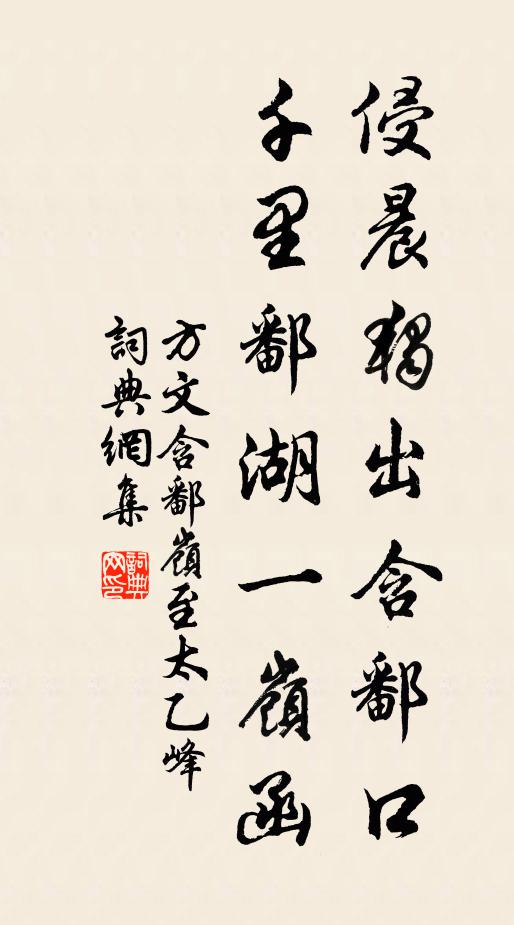 侵晨獨出含鄱口
千里鄱湖一嶺函
方文含鄱嶺至太乙峰
詞典網集
詞典網印